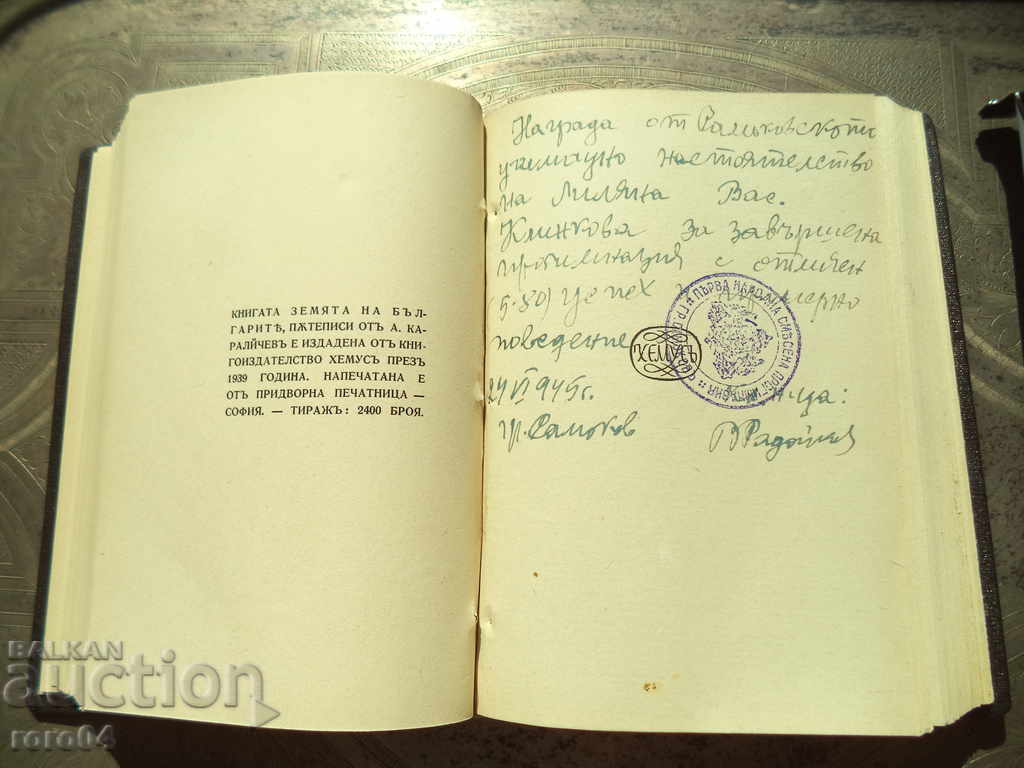 КНИГАТА ЗЕМЯТА НА БЪЛ-
ГАРИТѢ, ПѪТЕПИСИ ОТЪ А. КА-
РАЛИЙЧЕВЪ Е ИЗДАДЕНА ОТЪ КНИ-
ГОИЗДАТЕЛСТВО ХЕМУСЪ ПРЕЗЪ
1939 ГОДИНА. НАПЕЧАТАНА Е
ОТЪ ПРИДВОРНА ПЕЧАТНИЦА —
СОФИЯ. — ТИРАЖЪ: 2400 БРОЯ.
Награда от Самоковското
училищно настоятелство
на Лиляна Вас.
Клинкова за завършена
прогимназия с отличен
(5·80) успех и примерно
поведение
ХЕМУСЪ
ПЪРВА НАРОДНА СМѢСЕНА ПРОГИМНАЗИЯ
24 VI 1945 г.
гр. Самоков